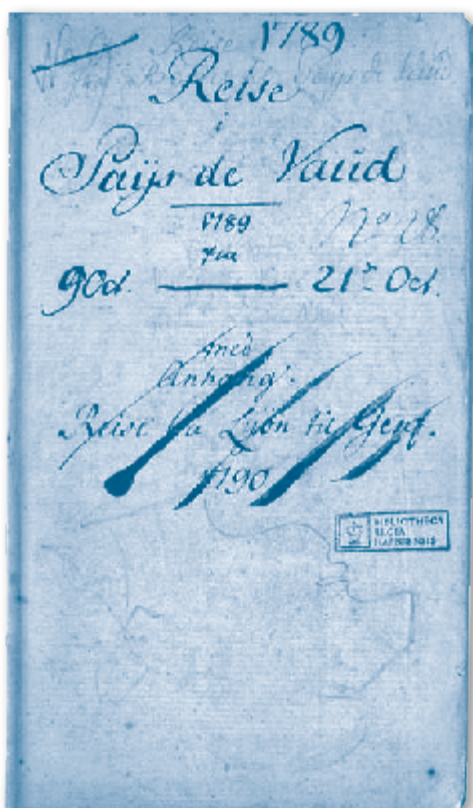 1789
Pays de Vaud
Reise
i
Paÿs de Vaŭd
1789
No 28.
fra
9 Oct. — 21t Oct.
med
Anhang:
Reise fra Lÿon til Genf.
1790
BIBLIOTHECA
REGIA
HAFNIENSIS